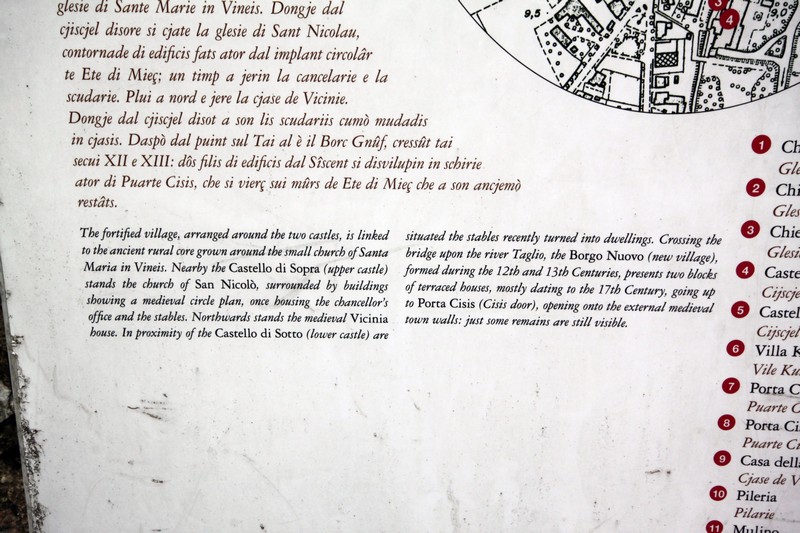 glesie di Sante Marie in Vineis. Dongje dal
cjiscjel disore si cjate la glesie di Sant Nicolau,
contornade di edificis fats ator dal implant circolâr
te Ete di Mieç; un timp a jerin la cancelarie e la
scudarie. Plui a nord e jere la cjase de Vicinie.
Dongje dal cjiscjel disot a son lis scudariis cumò mudadis
in cjasis. Daspò dal puint sul Tai al è il Borc Gnûf, cressût tai
secui XII e XIII: dôs filis di edificis dal Sîscent si disvilupin in schirie
ator di Puarte Cisis, che si vierç sui mûrs de Ete di Mieç che a son ancjemò
restâts.
The fortified village, arranged around the two castles, is linked
to the ancient rural core grown around the small church of Santa
Maria in Vineis. Nearby the Castello di Sopra (upper castle)
stands the church of San Nicolò, surrounded by buildings
showing a medieval circle plan, once housing the chancellor's
office and the stables. Northwards stands the medieval Vicinia
house. In proximity of the Castello di Sotto (lower castle) are
situated the stables recently turned into dwellings. Crossing the
bridge upon the river Taglio, the Borgo Nuovo (new village),
formed during the 12th and 13th Centuries, presents two blocks
of terraced houses, mostly dating to the 17th Century, going up
to Porta Cisis (Cisis door), opening onto the external medieval
town walls: just some remains are still visible.
9,5
3
4
1 Ch
Gle
2 Chi
Gles
3 Chie
Glesi
4 Caste
Cijscje
5 Castel
Cijscjel
6 Villa K
Vile Ku
7 Porta C
Puarte C
8 Porta Ci
Puarte Ci
9 Casa della
Cjase de V
10 Pileria
Pilarie
11 Mulino